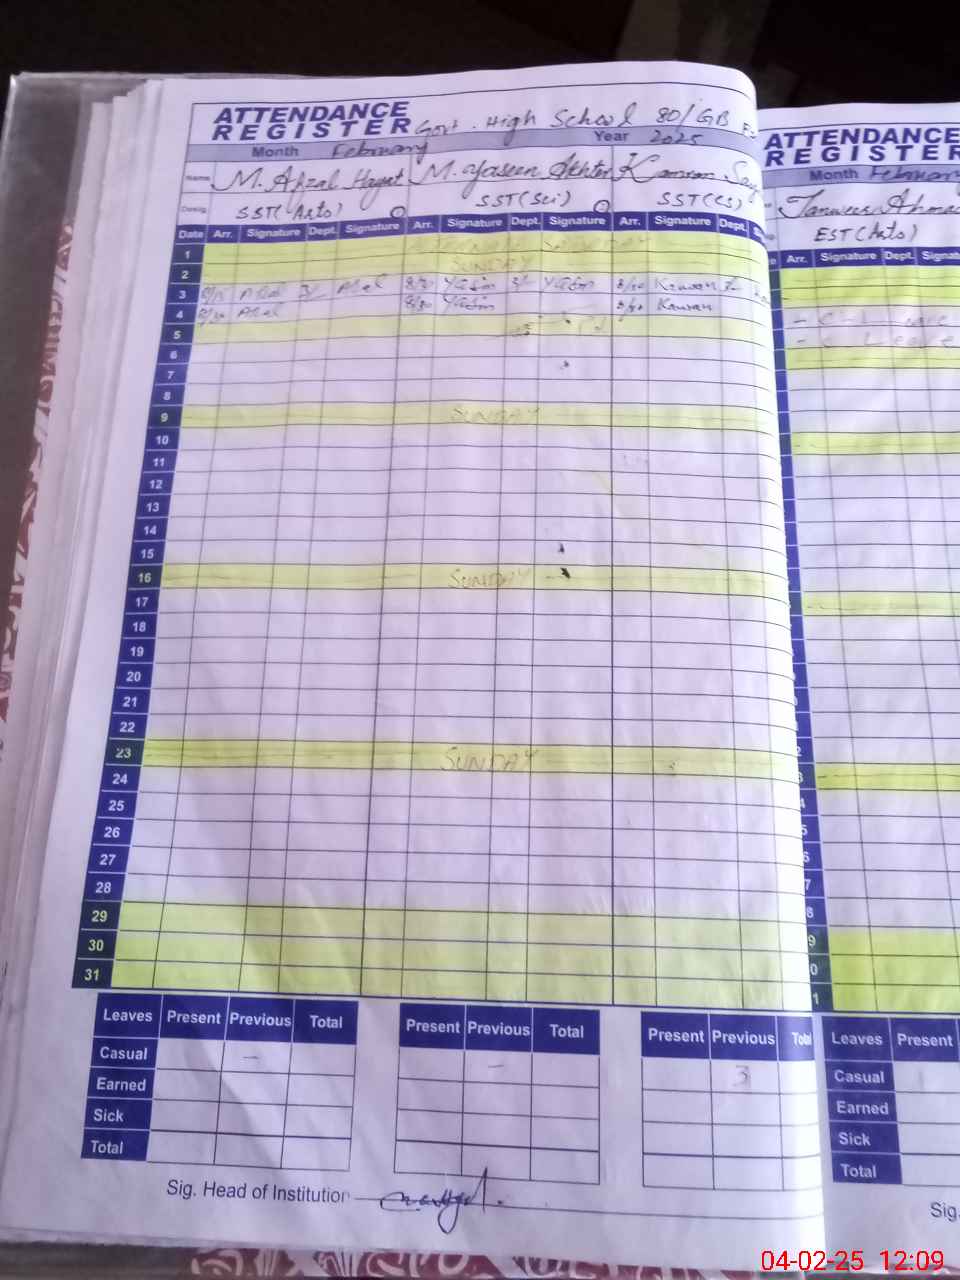 ATTENDANCE
REGISTER Govt. High School 80/GB
Month February Year 2025
Name M. Afzal Hayat M. Yaseen Akhter Kamran
Desig. SST(Arts) SST(Sci) SST(CS)
Date Arr. Signature Dept. Signature Arr. Signature Dept. Signature Arr. Signature Dept.
1
2 SUNDAY
3 Afzal Afzal 8/30 Kamran
4 Afzal 8/30 Kamran
5
6
7
8
9 SUNDAY
10
11
12
13
14
15
16 SUNDAY
17
18
19
20
21
22
23 SUNDAY
24
25
26
27
28
29
30
31
Leaves Present Previous Total Present Previous Total Present Previous Total
Casual - - 3
Earned
Sick
Total
Sig. Head of Institution
ATTENDANCE
REGISTER
Month February
Tanveer Ahmad
EST(Arts)
Arr. Signature Dept.
- C - Leave
- C Leave
Leaves Present
Casual 1
Earned
Sick
Total
Sig.
04-02-25 12:09